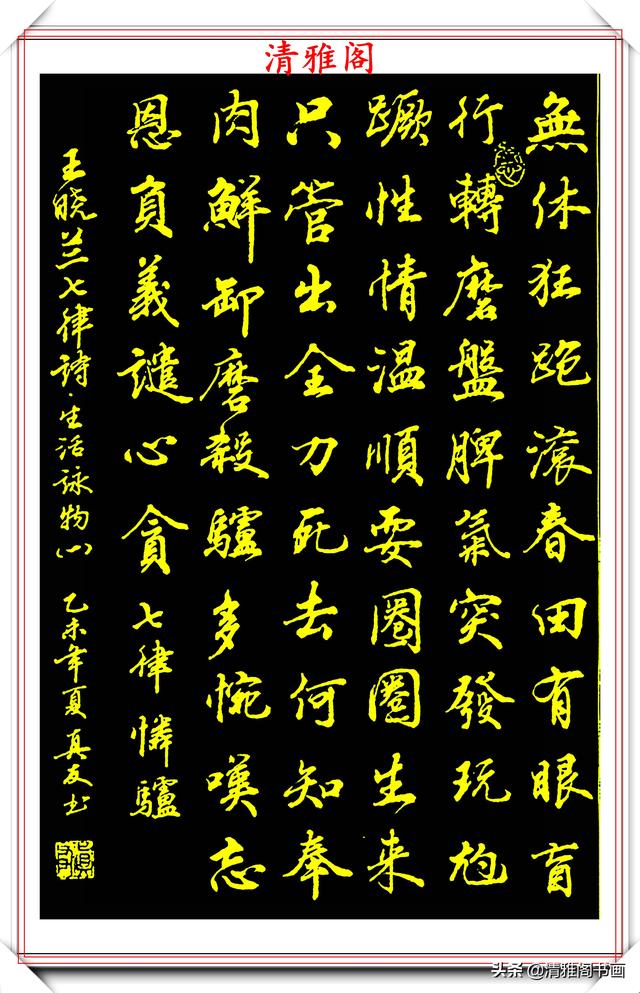 清雅阁
無休狂跑滾春田有眼盲
行轉磨盤脾氣突發玩尥
蹶性情温順耍圈圈生来
只管出全力死去何知奉
肉鮮卸磨殺驢多惋嘆忘
恩負義譴心貪 七律憐驢
王晓兰七律詩·生活詠物(一) 乙未年夏真友书
头条@清雅阁书画